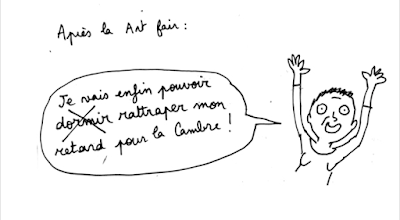 Après la Art fair :
Je vais enfin pouvoir
dormir rattraper mon
retard pour la Cambre !